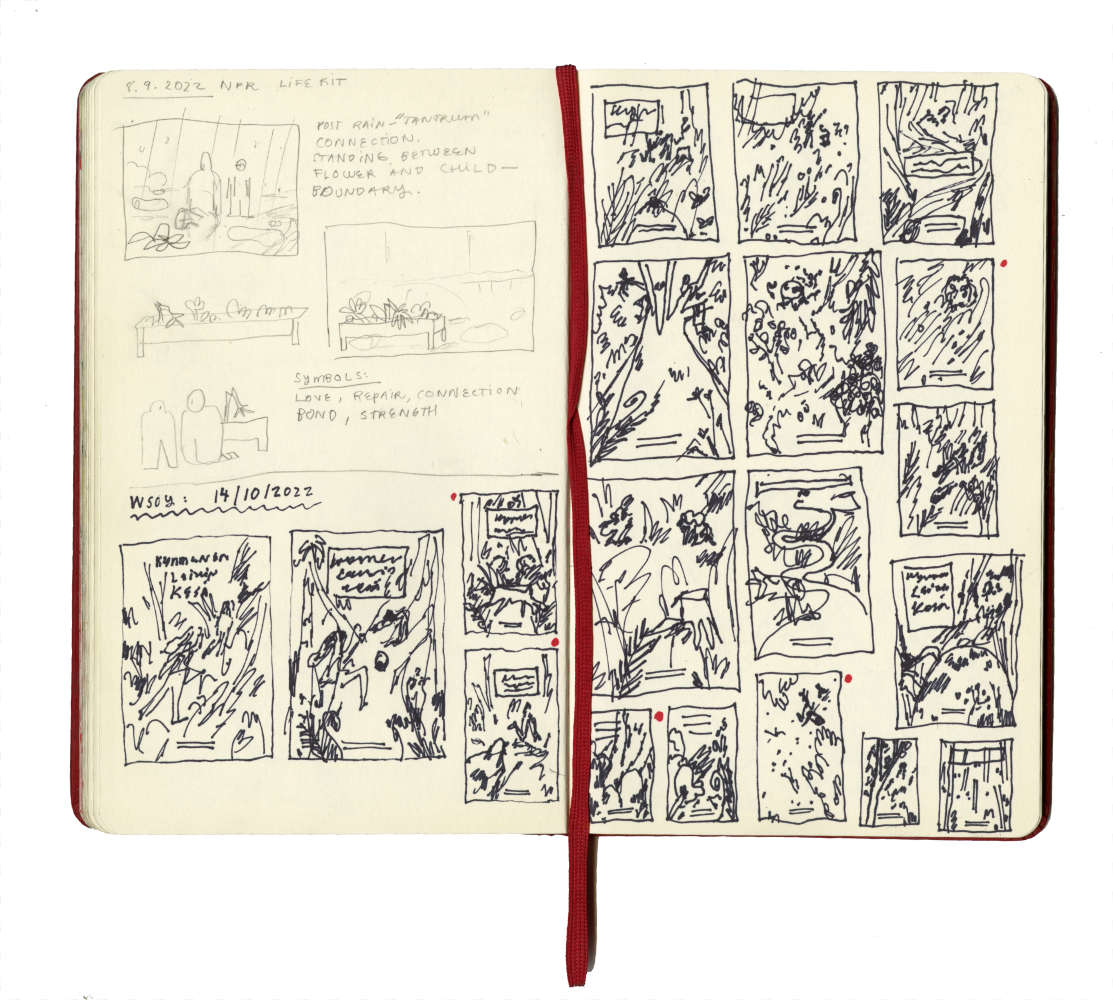 8.9.2022 NPR LIFE KIT
POST RAIN - "TANTRUM"
CONNECTION.
STANDING BETWEEN
FLOWER AND CHILD —
BOUNDARY.
SYMBOLS:
LOVE, REPAIR, CONNECTION
BOND, STRENGTH
WSOY: 14/10/2022
KYMMENEN
Loinin
KESA
Kymmen
Kymmen
Loinin
Kesa